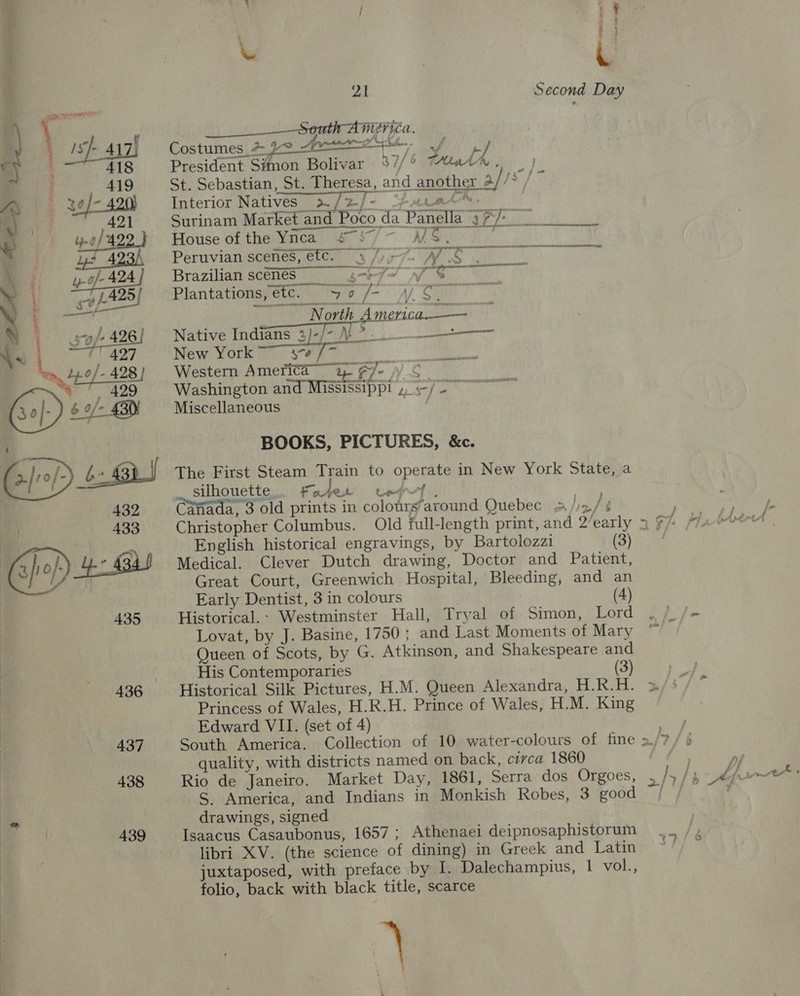 21 Second Day
South America.
417 Costumes
418 President Simon Bolivar 37/6
419 St. Sebastian, St. Theresa, and another
420 Interior Natives
421 Surinam Market and Poco da Panella
422 House of the Ynca N.S.
423 Peruvian scenes, etc. N.S.
424 Brazilian scenes
425 Plantations, etc. N.S.
North America.
426 Native Indians
427 New York
428 Western America
429 Washington and Mississippi
430 Miscellaneous
BOOKS, PICTURES, &c.
431 The First Steam Train to operate in New York State, a
silhouette
432 Canada, 3 old prints in colours around Quebec
433 Christopher Columbus. Old full-length print, and 2 early
English historical engravings, by Bartolozzi (3)
434 Medical. Clever Dutch drawing, Doctor and Patient,
Great Court, Greenwich Hospital, Bleeding, and an
Early Dentist, 3 in colours (4)
435 Historical. Westminster Hall, Tryal of Simon, Lord
Lovat, by J. Basine, 1750; and Last Moments of Mary
Queen of Scots, by G. Atkinson, and Shakespeare and
His Contemporaries (3)
436 Historical Silk Pictures, H.M. Queen Alexandra, H.R.H.
Princess of Wales, H.R.H. Prince of Wales, H.M. King
Edward VII. (set of 4)
437 South America. Collection of 10 water-colours of fine
quality, with districts named on back, circa 1860
438 Rio de Janeiro. Market Day, 1861, Serra dos Orgoes,
S. America, and Indians in Monkish Robes, 3 good
drawings, signed
439 Isaacus Casaubonus, 1657; Athenaei deipnosaphistorum
libri XV. (the science of dining) in Greek and Latin
juxtaposed, with preface by I. Dalechampius, 1 vol.,
folio, back with black title, scarce